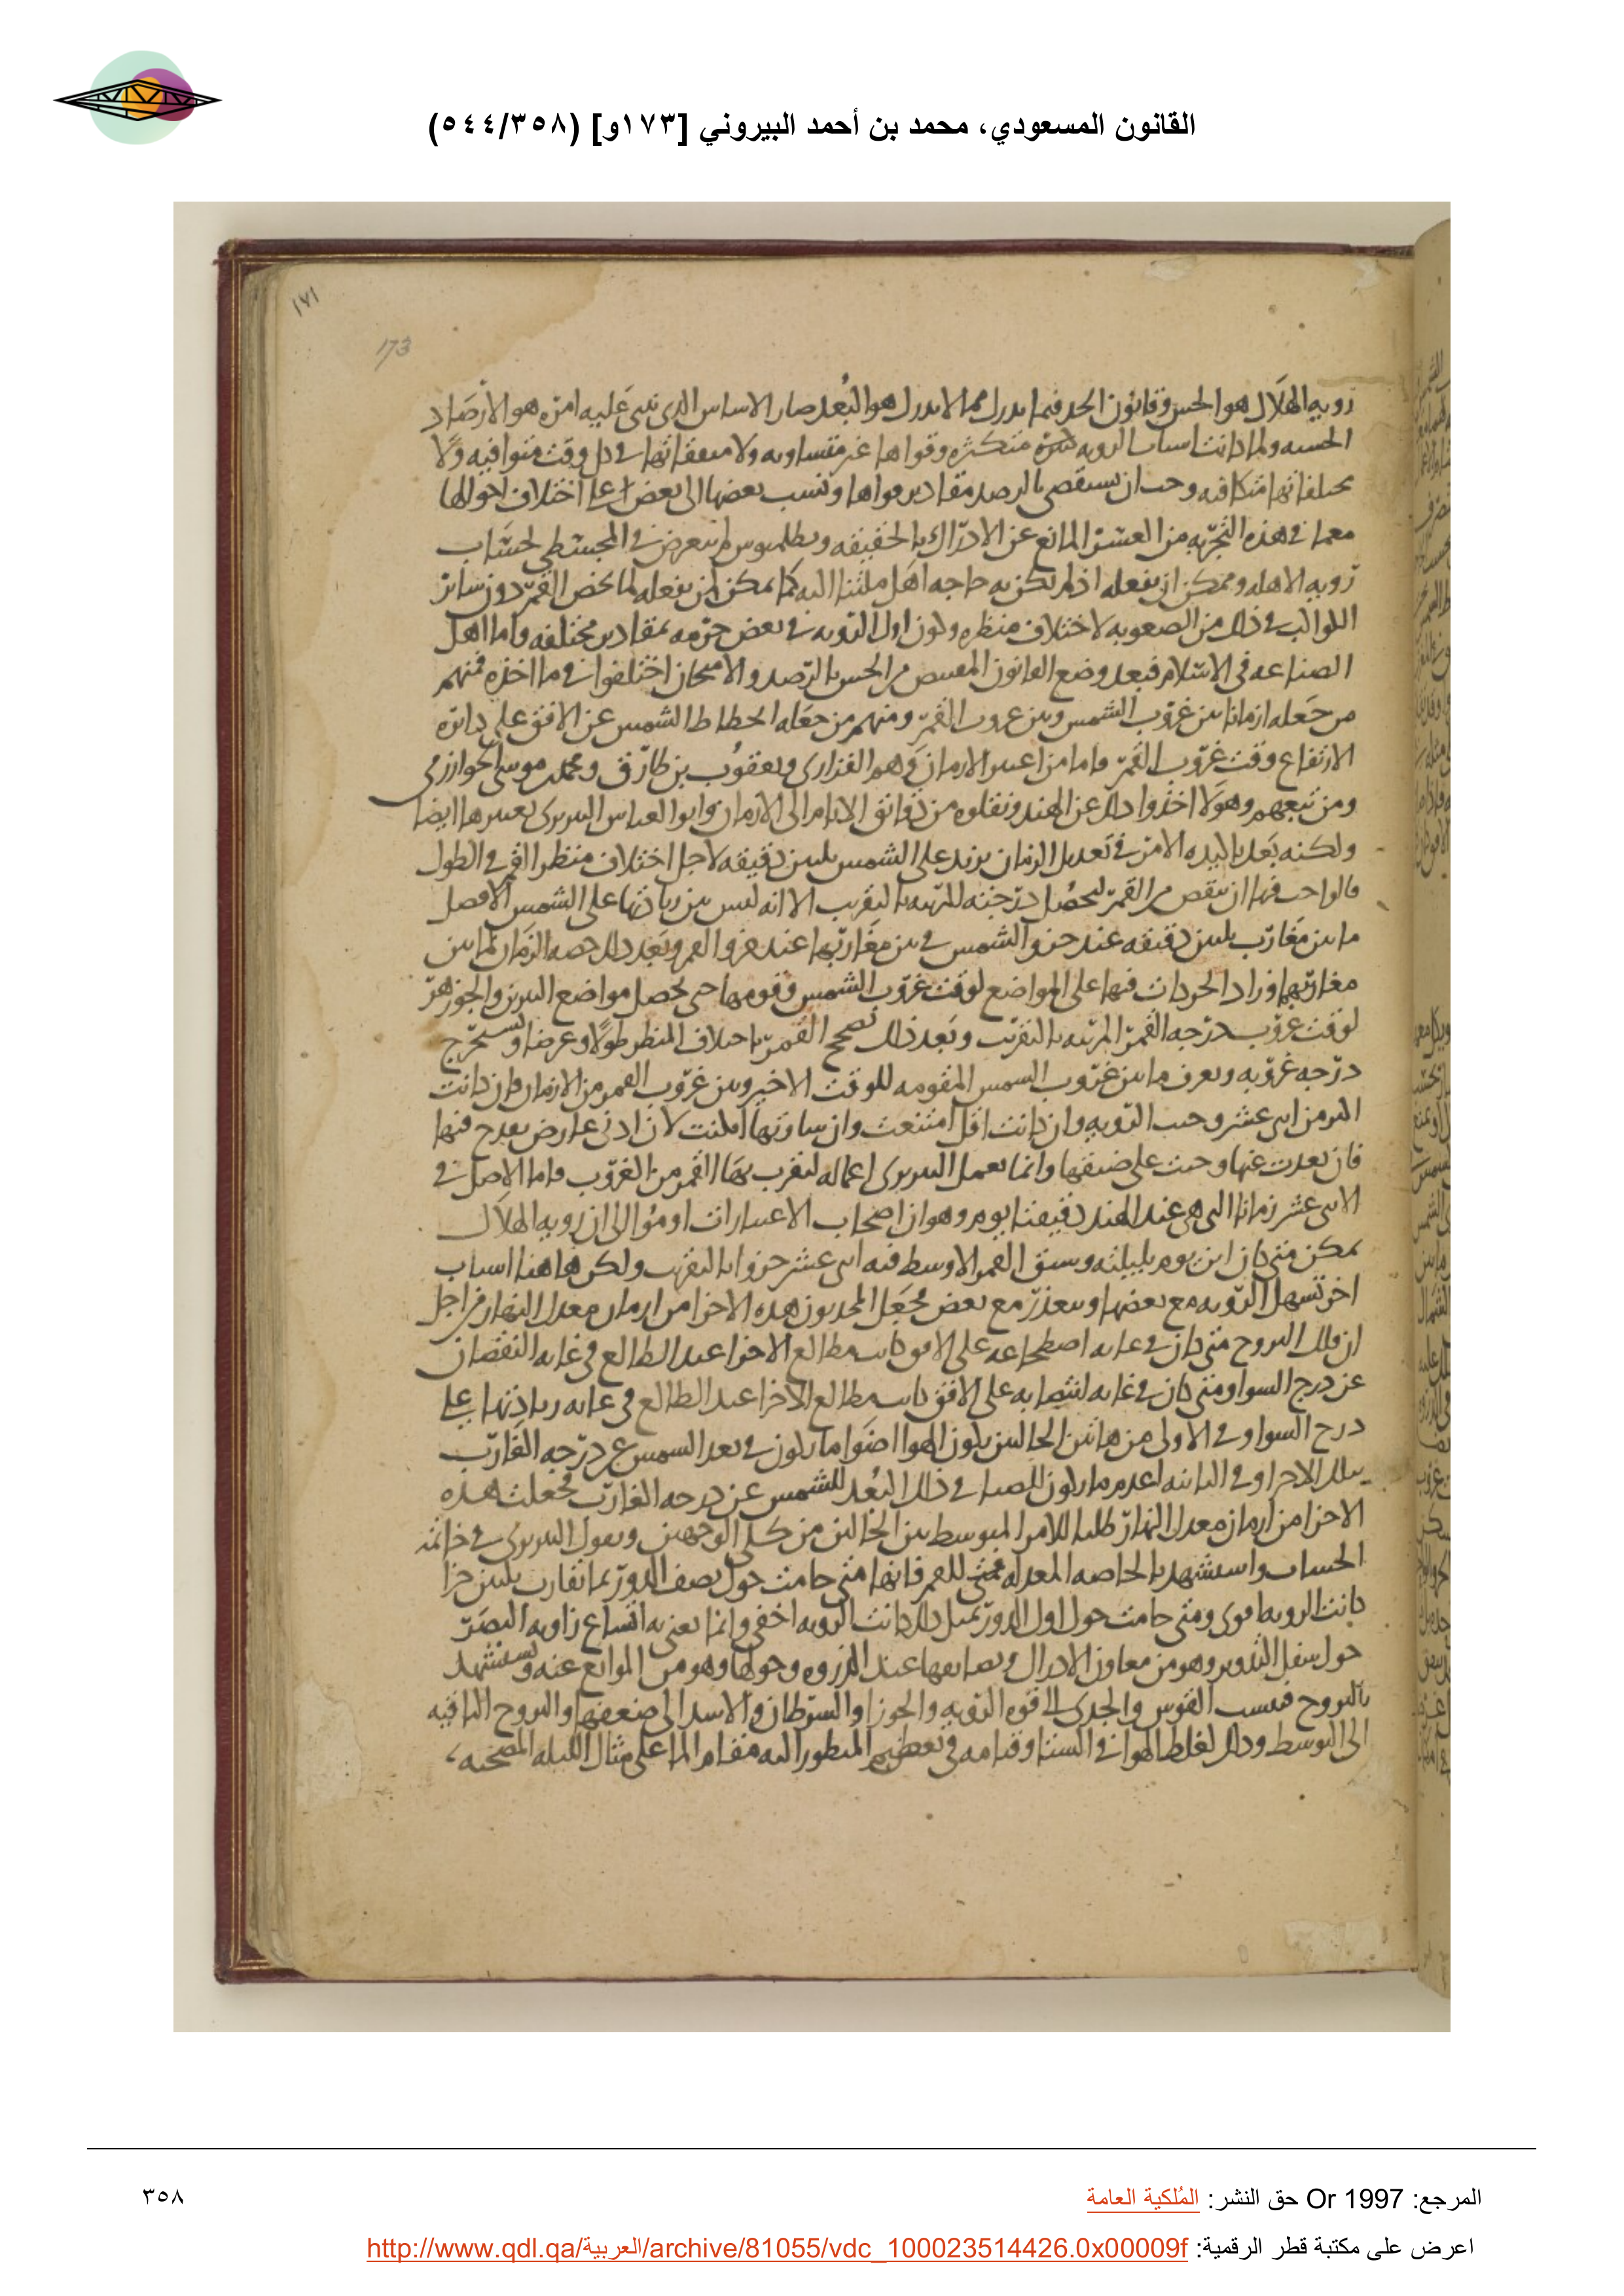 القانون المسعودي، محمد بن أحمد البيروني [١٧٣و] (٥٤٤/٣٥٨)
١٧١
173
رويه الهلال هو الحس وقانون الحد فيما يدرك مما لا يدرك هو البعد صار الاساس الذي نبني عليه امره هو الارصاد
الحسيه ولما كانت اسباب الرويه كثيره متكثره وقواها غير متساويه ولا متفقاتها في كل وقت متوافيه ولا
مختلفاتها متكافيه وجب ان يستقصى بالرصد مقادير قواها وتنسب بعضها الى بعض على اختلاف احوالها
معما في هذه التجربه من العسر المانع عن الادراك بالحقيقه وبطلميوس لم يتعرض في المجسطي لحساب
رويه الاهله وممكن ان يفعله اذ لم تكن به حاجه اهل ملتنا اليه كما يمكن لمن يفعله لما يخص القمر دون سائر
الكواكب في ذلك من الصعوبه لاختلاف منظره وكون اول الرويه في بعض جرمه بمقادير مختلفه واما اهل
الصناعه في الاسلام فبعد وضع القانون المقتبس من الحس بالرصد والامتحان اختلفوا في ما اخذه فمنهم
من جعله ازمانا بين غروب الشمس وبين غروب القمر ومنهم من جعله انحطاط الشمس عن الافق على دائره
الارتفاع وقت غروب القمر واما من اعتبر الازمان فهم الفزاري ويعقوب بن طارق ومحمد موسى الخوارزمي
ومن تبعهم وهولا اخذوا ذلك عن الهند ونقلوه من دقائق الايام الى الازمان وابو العباس النيريزي يعتبرها ايضا
ولكنه بعد تاكيده الامر في تعديل الزمان يزيد على الشمس ثلثين دقيقه لاجل اختلاف منظر القمر في الطول
فالواجب فيها ان ينقص من القمر ليحصل درجته المرئيه بالتقريب الا انه ليس بين زيادتها على الشمس الافضل
ما بين مغارب ثلثين دقيقه عند جزو الشمس في بين مغاربها عند جزو القمر وبعد ذلك حصه الزمان لما بين
مغاربهما وزاد الحركات فيها على المواضع لوقت غروب الشمس وقومها حتى تحصل مواضع النيرين والجوزهر
لوقت غروب درجه القمر المرئيه بالتقريب وبعد ذلك نصحح القمر باختلاف المنظر طولا وعرضا ونستخرج
درجه غروبه ويعرف ما بين غروب الشمس المقومه للوقت الاخير وبين غروب القمر من الازمان فان كانت
اكثر من اثني عشر وجبت الرويه وان كانت اقل امتنعت وان ساوتها امكنت لان ادنى عارض يقدح فيها
فان بعدت عنها وجبت على ضيقها وانما يعمل النيريزي اعماله ليقرب بها القمر من الغروب واما الاصل في
الاثني عشر زمانا التي هي عند الهند دقيقتا يوم وهو ان اصحاب الاعتبارات اوموا الى ان رويه الهلال
تمكن متى كان ابن يوم بليلته وسبق القمر الاوسط فيه اثني عشر جزوا بالتقريب ولكن هاهنا اسباب
اخر تسهل الرويه مع بعضها ويتعذر مع بعض فجعل المحدثون هذه الاجزا من ازمان معدل النهار من اجل
ان فلك البروج متى كان في غايه اضطجاعه على الافق كانت مطالع الاجزا عند الطالع في غايه النقصان
عن درج السوا ومتى كان في غايه انتصابه على الافق كانت مطالع الاجزا عند الطالع في غايه زيادتها على
درج السوا وفي الاولى من هاتين الحالتين يكون الهوا اضوا ما يكون في بعد الشمس عن درجه الغارب
بتلك الاجزا وفي الثانيه اعدم ما يكون للضيا في ذلك البعد للشمس عن درجه الغارب فجعلت هذه
الاجزا من ازمان معدل النهار طلبا للامر المتوسط بين الحالتين من كلى الوجهين ويقول النيريزي في خاتمه
الحساب واستشهد بالخاصه المعدله للقمر فانها متى كانت حول نصف الدور بما تقارب ثلثين جزا
كانت الرويه اقوى ومتى كانت حول اول الدور بمثل ذلك كانت الرويه اخفى وانما يعني به اتساع زاويه البصر
حول سفل التدوير وهو من معاون الادراك وتضايقها عند الذروه وحولها وهو من الموانع عنه ونستشهد
بالبروج فنسب القوس والجدي الى قوه الرويه والجوزا والسرطان والاسد الى ضعفها والبروج الباقيه
الى التوسط وذلك لغلظ الهوا في الشتا وقيامه في تعظيم المنظور اليه مقام الما على مثال
المرجع: Or 1997 حق النشر: المُلكية العامة
٣٥٨
اعرض على مكتبة قطر الرقمية: http://www.qdl.qa/العربية/archive/81055/vdc_100023514426.0x00009f